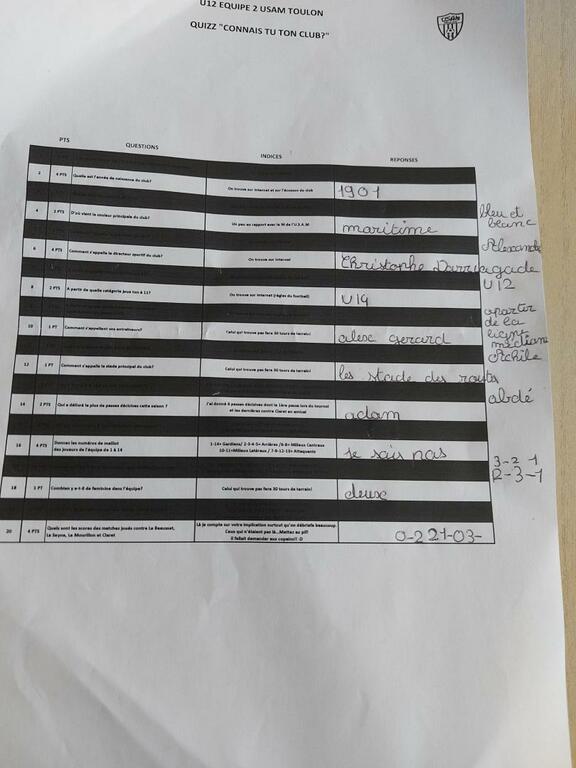 U12 EQUIPE 2 USAM TOULON
QUIZZ "CONNAIS TU TON CLUB?"
PTS QUESTIONS INDICES REPONSES
2 4 PTS Quelle est l'année de naissance du club? On trouve sur internet et sur l'écusson du club 1901
bleu et
blanc
4 2 PTS D'où vient la couleur principale du club? Un peu en rapport avec le M de l'U.S.A.M maritime
Alexandre
6 4 PTS Comment s'appelle le directeur sportif du club? On trouve sur internet Christophe Darrigade
U12
8 2 PTS A partir de quelle catégorie joue ton à 11? On trouve sur internet (règles du football) U14
apartir
de la
ligne
mediane
10 1 PT Comment s'appellent vos entraîneurs? Celui qui trouve pas fera 30 tours de terrain! alex gerard
Achile
12 1 PT Comment s'appelle le stade principal du club? Celui qui trouve pas fera 30 tours de terrain! les stade des routes
abdé
14 2 PTS Qui a délivré le plus de passes décisives cette saison ? J'ai donné 6 passes décisives dont la 1ère passe lors du tournoi
et les dernières contre Claret en amical adam
16 4 PTS Donnez les numéros de maillot
des joueurs de l'équipe de 1 à 14 1-14= Gardiens/ 2-3-4-5= Arrières /6-8= Milieux Centraux
10-11=Milieux Latéraux / 7-9-12-13= Attaquants je sais pas
3-2 1
2-3-1
18 1 PT Combien y a-t-il de feminine dans l'équipe? Celui qui trouve pas fera 30 tours de terrain! deux
20 4 PTS Quels sont les scores des matches joués contre Le Beausset,
La Seyne, Le Mourillon et Claret Là je compte sur votre implication surtout qu'on débriefe beaucoup
Ceux qui n'étaient pas là...Mettez au pif!
Il fallait demander aux copains!! :D 0-2 21-03-